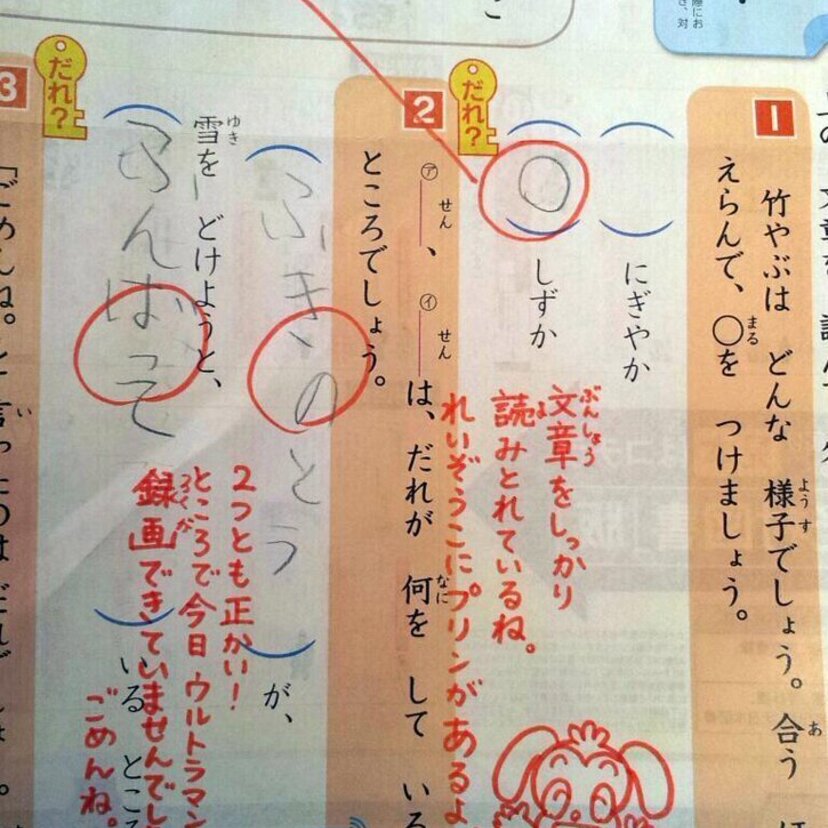 1
竹やぶは どんな 様子でしょう。合う
ようす
あ
えらんで、〇を つけましょう。
まる
にぎやか
〇
しずか
文章をしっかり
ぶんしょう
読みとれているね。
よ
れいぞうこにプリンがあるよ
だれ?
2
㋐ せん、㋑ せんは、だれが 何を して いる
なに
ところでしょう。
ふきのとう
が、
雪を どけようと、
ゆき
ふんばって
いる ところ
2つとも正かい!
ところで今日 ウルトラマン
録画できていませんでし
ろくが
ごめんね。
だれ?
3
「ごめんね。」と 言ったのは だれでしょ
い